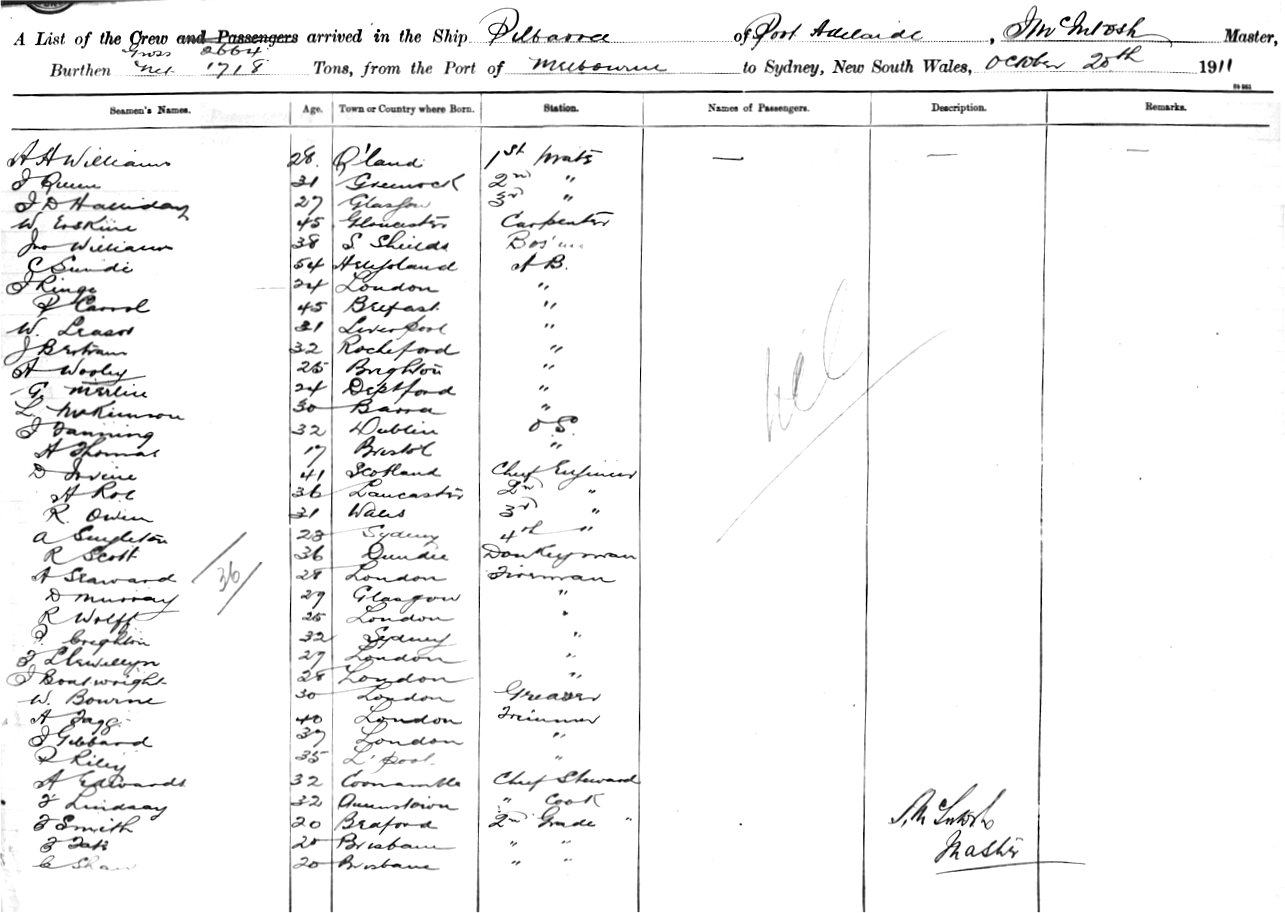 A List of the Crew and Passengers arrived in the Ship Pilbarra of Port Adelaide, J McIntosh Master,
Burthen Gross 2664 Net 1718 Tons, from the Port of Melbourne to Sydney, New South Wales, October 20th 1911
Seamen's Names. Age. Town or Country where Born. Station. Names of Passengers. Description. Remarks.
A H Williams 28 Q'land 1st Mate — — —
J 31 Greenock 2nd "
J D Halliday 27 Glasgow 3rd "
W. Erskine 45 Gloucester Carpenter
Jno Williams 38 S. Shields Bos'un
C Sundi 54 A B.
J Ringe 24 London "
P Carrol 45 Belfast "
W. 31 Liverpool "
J Bertram 32 Rocheford "
A Wooley 25 Brighton "
G. Merlin 24 Deptford "
L. McKinnon 30 Barra "
J Fanning 32 Dublin O S.
A Thomas 17 Bristol "
D Irvine 41 Scotland Chief Engineer
A Roe 36 Lancaster 2nd "
R. Owen 31 Wales 3rd "
A Singleton 28 Sydney 4th "
R Scott 36 Dundee Donkeyman
A Seaward 28 London Fireman
36
D Murray 29 Glasgow "
R Wolff 25 London "
Creighton 32 Sydney "
F Llewillyn 27 London "
J Boatwright 28 London "
W. Bourne 30 London Greaser
A Fagg 40 London Trimmer
J Gibbard 37 London "
P Riley 35 L'pool "
A Edwards 32 Coonamble Chief Steward
F Lindsay 32 Queenstown " Cook
F Smith 20 Bedford 2nd Grade "
F 20 Brisbane " "
C Shaw 20 Brisbane " "
Nil
J. McIntosh
Master